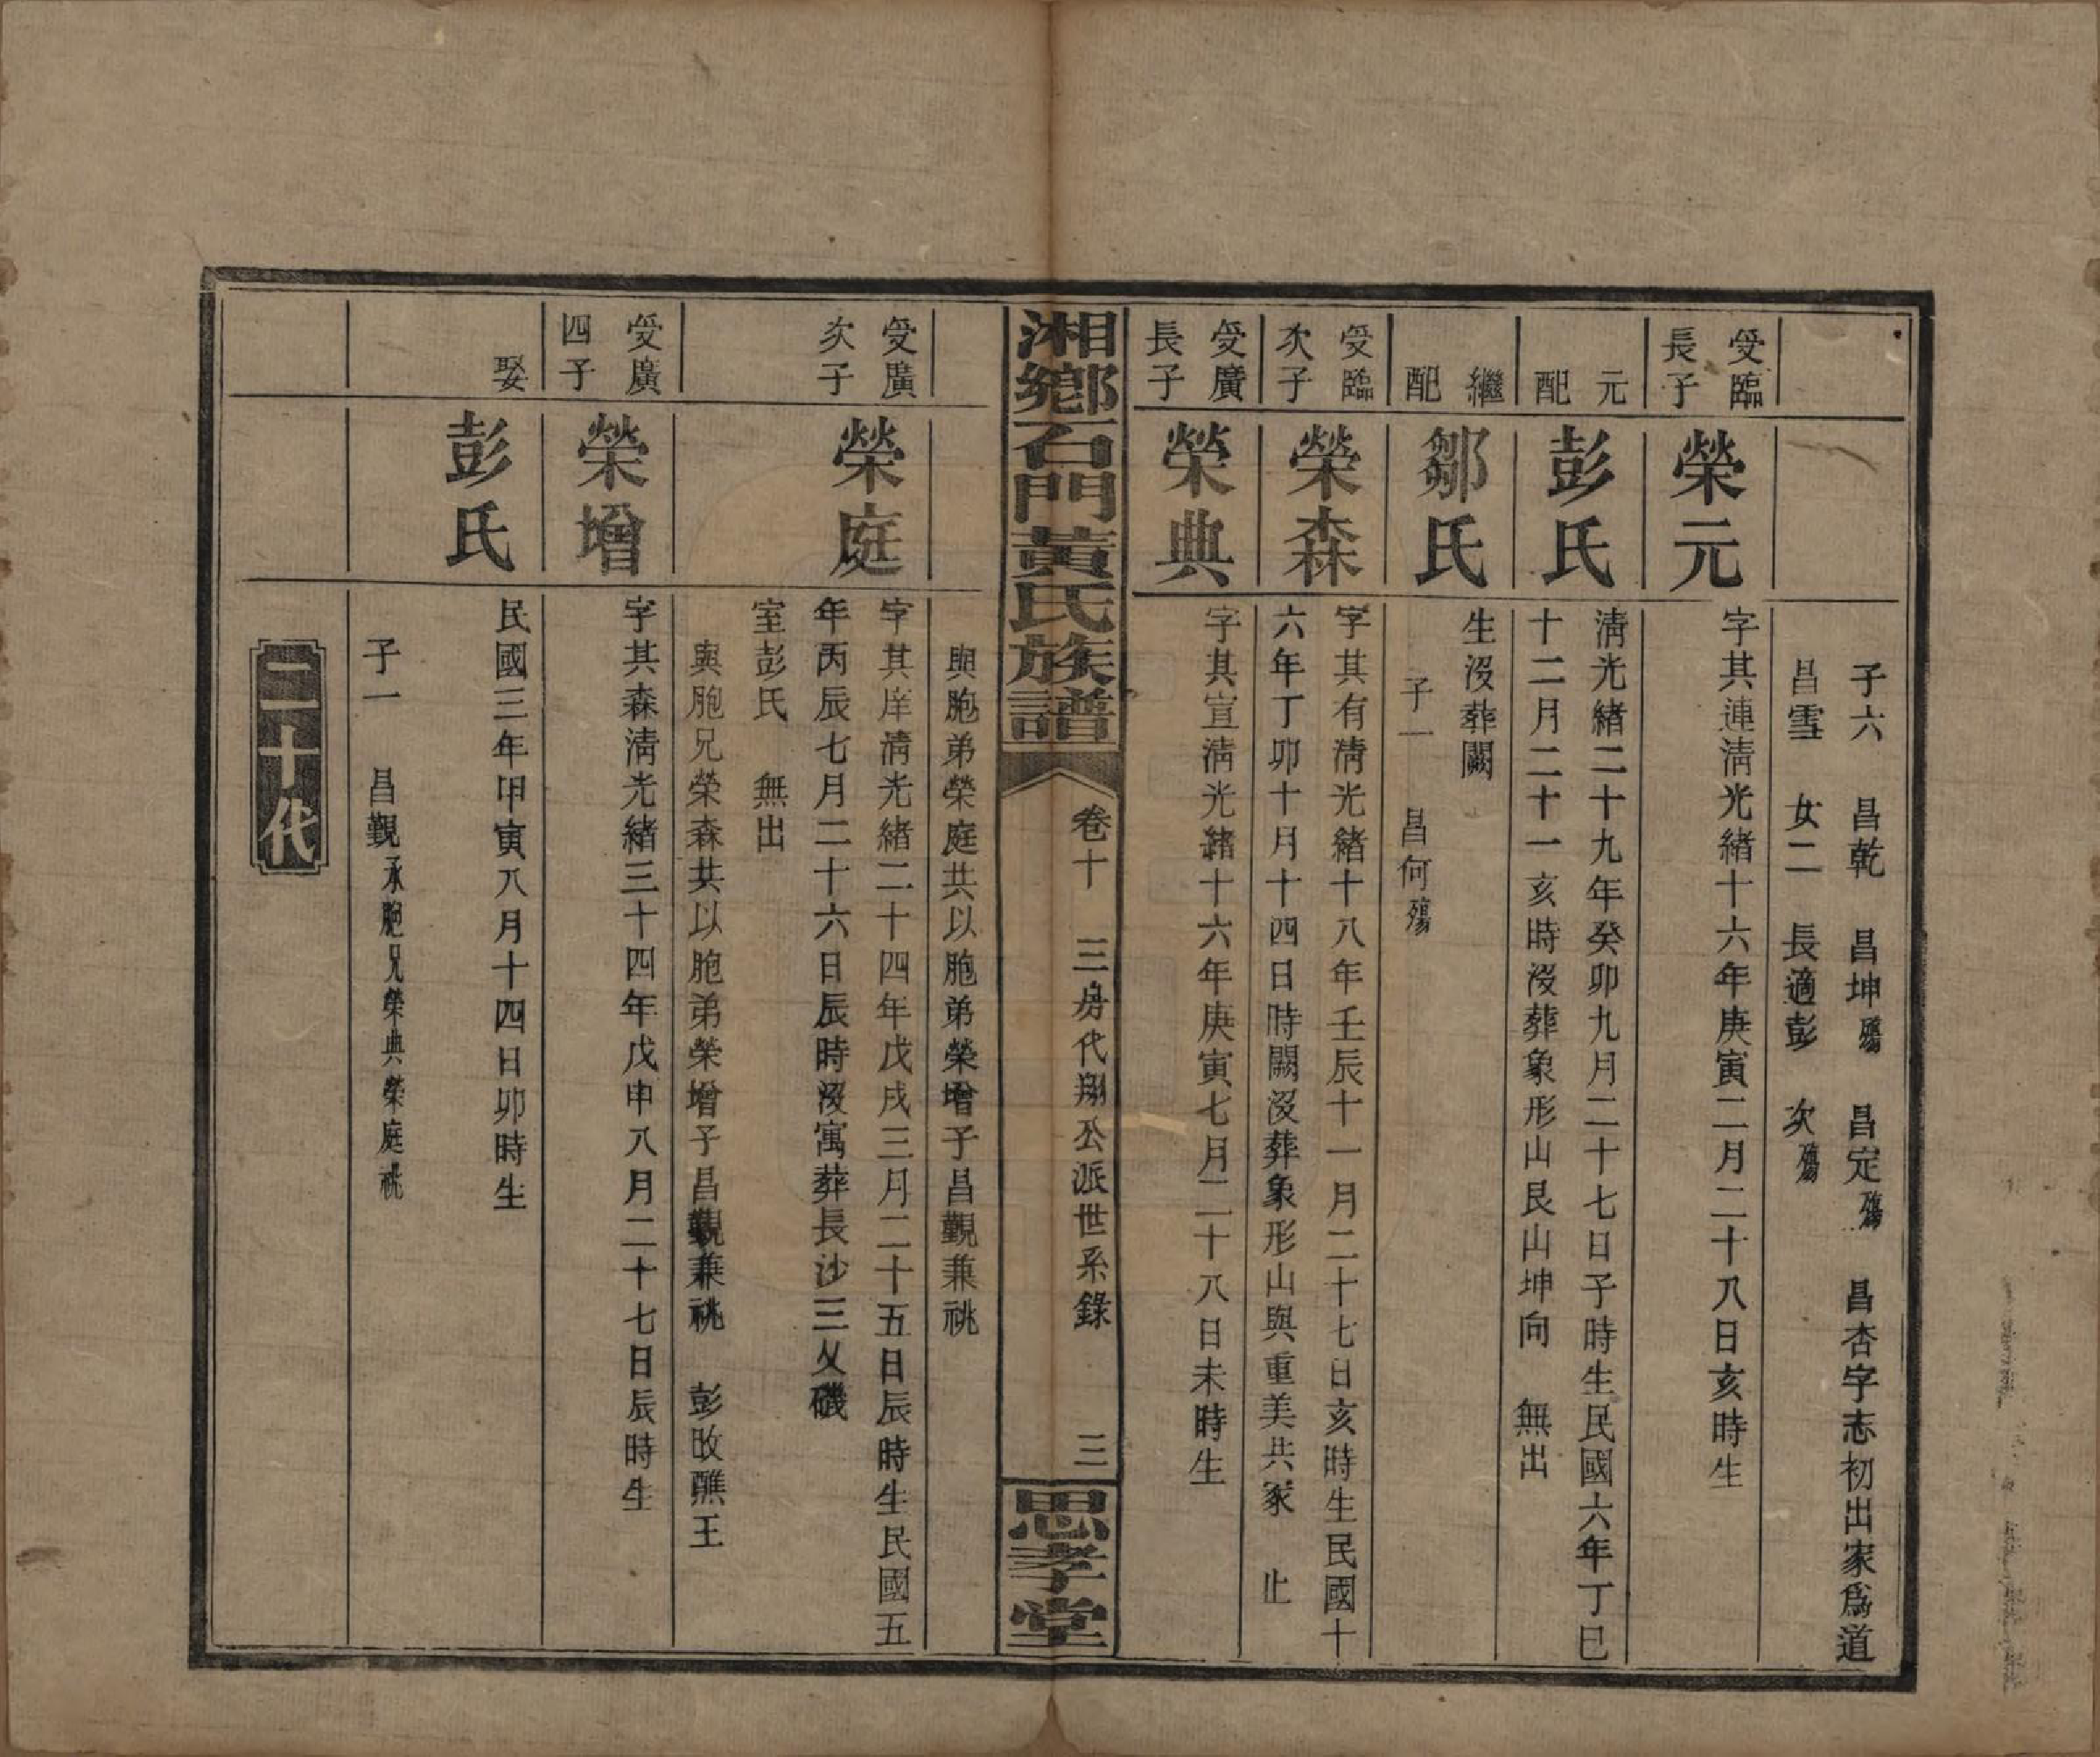 子六　昌乾　昌坤殤　昌定殤　昌杏字志初出家為道
昌雪　女二　長適彭　次殤
受臨
長子
榮元
字其連清光緒十六年庚寅二月二十八日亥時生
元
配
彭氏
清光緒二十九年癸卯九月二十七日子時生民國六年丁巳
十二月二十一亥時沒葬象形山艮山坤向　無出
繼
配
鄒氏
生沒葬闕
子一　昌何殤
受臨
次子
榮森
字其有清光緒十八年壬辰十一月二十七日亥時生民國十
六年丁卯十月十四日時闕沒葬象形山與重美共冢　止
受廣
長子
榮典
字其宣清光緒十六年庚寅七月二十八日未時生
湘鄉石門黃氏族譜
卷十　三房代翔公派世系錄　三
思孝堂
與胞弟榮庭共以胞弟榮增子昌觀兼祧
受廣
次子
榮庭
字其庠清光緒二十四年戊戌三月二十五日辰時生民國五
年丙辰七月二十六日辰時沒寓葬長沙三乂磯
室彭氏　無出
與胞兄榮森共以胞弟榮增子昌觀兼祧　彭改醮王
受廣
四子
榮增
字其森清光緒三十四年戊申八月二十七日辰時生
娶
彭氏
民國三年甲寅八月十四日卯時生
子一　昌觀承胞兄榮典榮庭祧
二十代